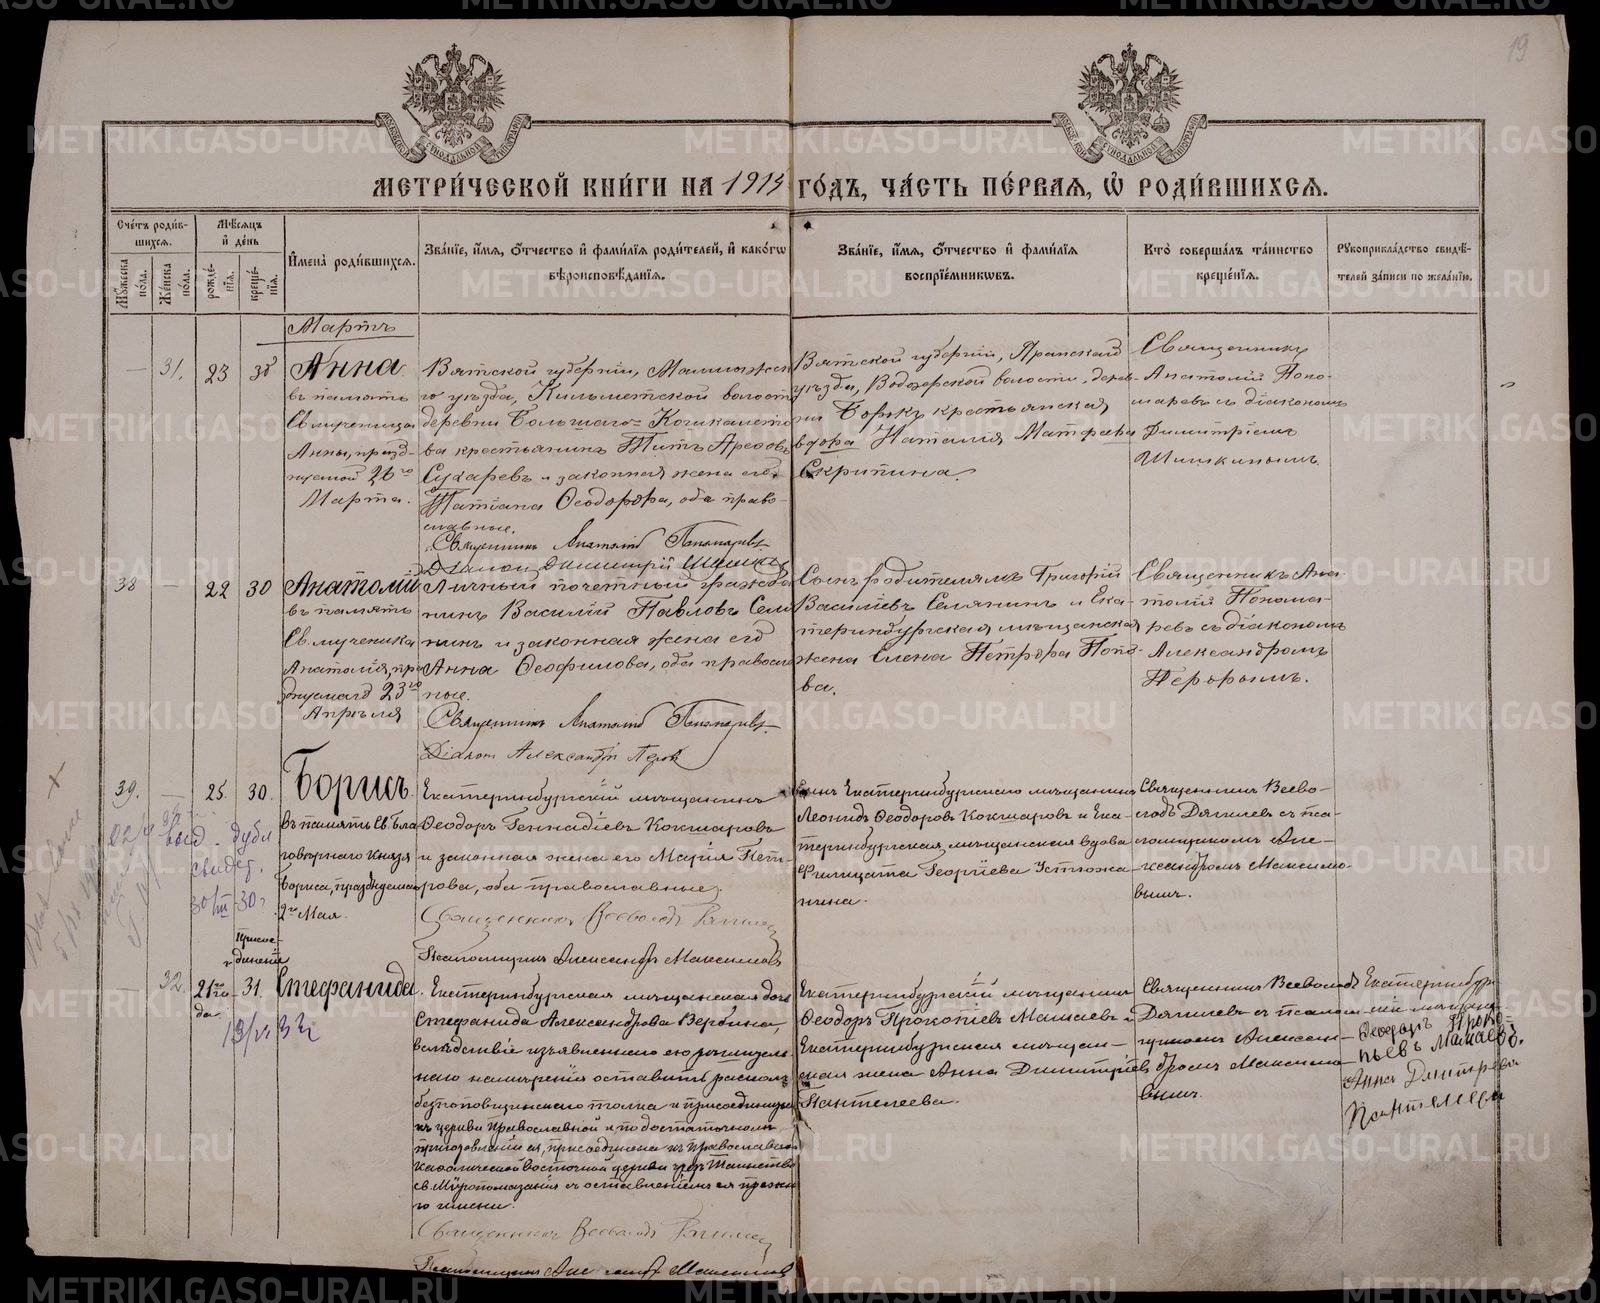 19
МЕТРИ́ЧЕСКОЙ КНИ́ГИ НА 1915 ГО́ДЪ, ЧА́СТЬ ПЕ́РВАЯ, Ѽ РОДИ́ВШИХСЯ.
Сче́тъ роди́в-
шихся.
Мѣ́сяцъ
и҆ де́нь
Му́жеска
по́ла.
Же́нска
по́ла.
рожде́-
нїя.
креще́-
нїя.
И҆мена̀ роди́вшихся.
Зва́нїе, и҆́мя, ѻ҆́тчество и҆ фами́лїя роди́телей, и҆ како́гѡ
вѣроисповѣ́данїя.
Зва́нїе, и҆́мя, ѻ҆́тчество и҆ фами́лїя
воспрїе́мникѡвъ.
Кто̀ соверша́лъ та́инство
креще́нїя.
Рꙋкоприкла́дство свидѣ́-
телей за́писи по жела́нїю.
Мартъ
31. 23 30
Анна
въ память
Св. мученицы
Анны, празд-
нуемой 26го
Марта.
Вятской губерніи, Малмыжск-
го уѣзда, Кильмезской волости
деревни Большаго-
ва крестьянинъ Титъ Ареѳовъ
Сухаревъ и законная жена его
Татіана Ѳеодорова, оба право-
славные.
Священникъ Анатолій Пономаревъ
Діаконъ Димитрій Шишкинъ
Вятской губерніи, Яранской
уѣзда, волости, дерев-
ни Боркъ крестьянская
вдова Наталія Матѳеева
Скрипина.
Священникъ
Анатолій Поно-
маревъ съ діакономъ
Димитріемъ
Шишкинымъ.
38 — 22 30
Анатолій
въ память
Св. мученика
Анатолія, пра
днуемаго 23го
Апрѣля
Личный почетный гражда
нинъ Василій Павловъ Селя
нинъ и законная жена его
Анна Ѳеофилова, оба правосла
ные.
Священникъ Анатолій Пономаревъ
Діаконъ Александръ Перов
Сынъ родителямъ Григорій
Васильевъ Селянинъ и Ека-
теринбургская мѣщанская
жена Елена Петрова Попо-
ва.
Священникъ Ана
толій Понома-
ревъ съ діакономъ
Александромъ
Перовымъ.
39. — 25. 30.
Борисъ.
въ память Св. Бла
говѣрнаго Князя
Бориса, празднуемаго
2го Мая.
Екатеринбургскій мѣщанинъ
Ѳеодоръ Геннадіевъ Кокшаровъ
и законная жена его Марія Пет-
рова, оба православные.
Священникъ Всеволодъ
Псаломщикъ Александръ Максимовъ
сынъ Екатеринбургскаго мѣщанина
Леонидъ Ѳеодоровъ Кокшаровъ и Ека-
теринбургская мѣщанская вдова
Филицата Георгіева Устюжа-
нина.
Священникъ Всево-
лодъ съ пса-
ломщикомъ Але-
ксандромъ Максимо-
вымъ.
выд. дубл
свидет.
30/III-30г
Присое-
динені
— 32. 21го го-
да 31.
Стефанида.
Екатеринбургская мѣщанская дочь
Стефанида Александрова Вербина,
вслѣдствіе изъявленнаго ею рѣшитель-
наго намѣренія оставить расколъ
безпоповщинскаго толка и присоединиться
къ церкви Православной и по достаточномъ
приготовленіи ея, присоединена къ Православной
Каѳолической Восточной церкви чрезъ Таинство
св. Мѵропомазанія съ оставленіемъ ея прежня
го имени.
Священникъ Всеволодъ
Псаломщикъ Александръ Максимовъ
Екатеринбургскій мѣщанинъ
Ѳеодоръ Прокопіевъ Мамаевъ и
Екатеринбургская мѣщан-
ская жена Анна Димитріева
Пантелеева.
Священникъ Всеволодъ
съ псалом-
щикомъ Алексан-
дромъ Максимо-
вымъ.
Екатеринбург
скій мѣщанин
Ѳеодоръ Проко-
пьевъ Мамаевъ.
Анна Дмитрева
Пантелеева
METRIKI.GASO-URAL.RU